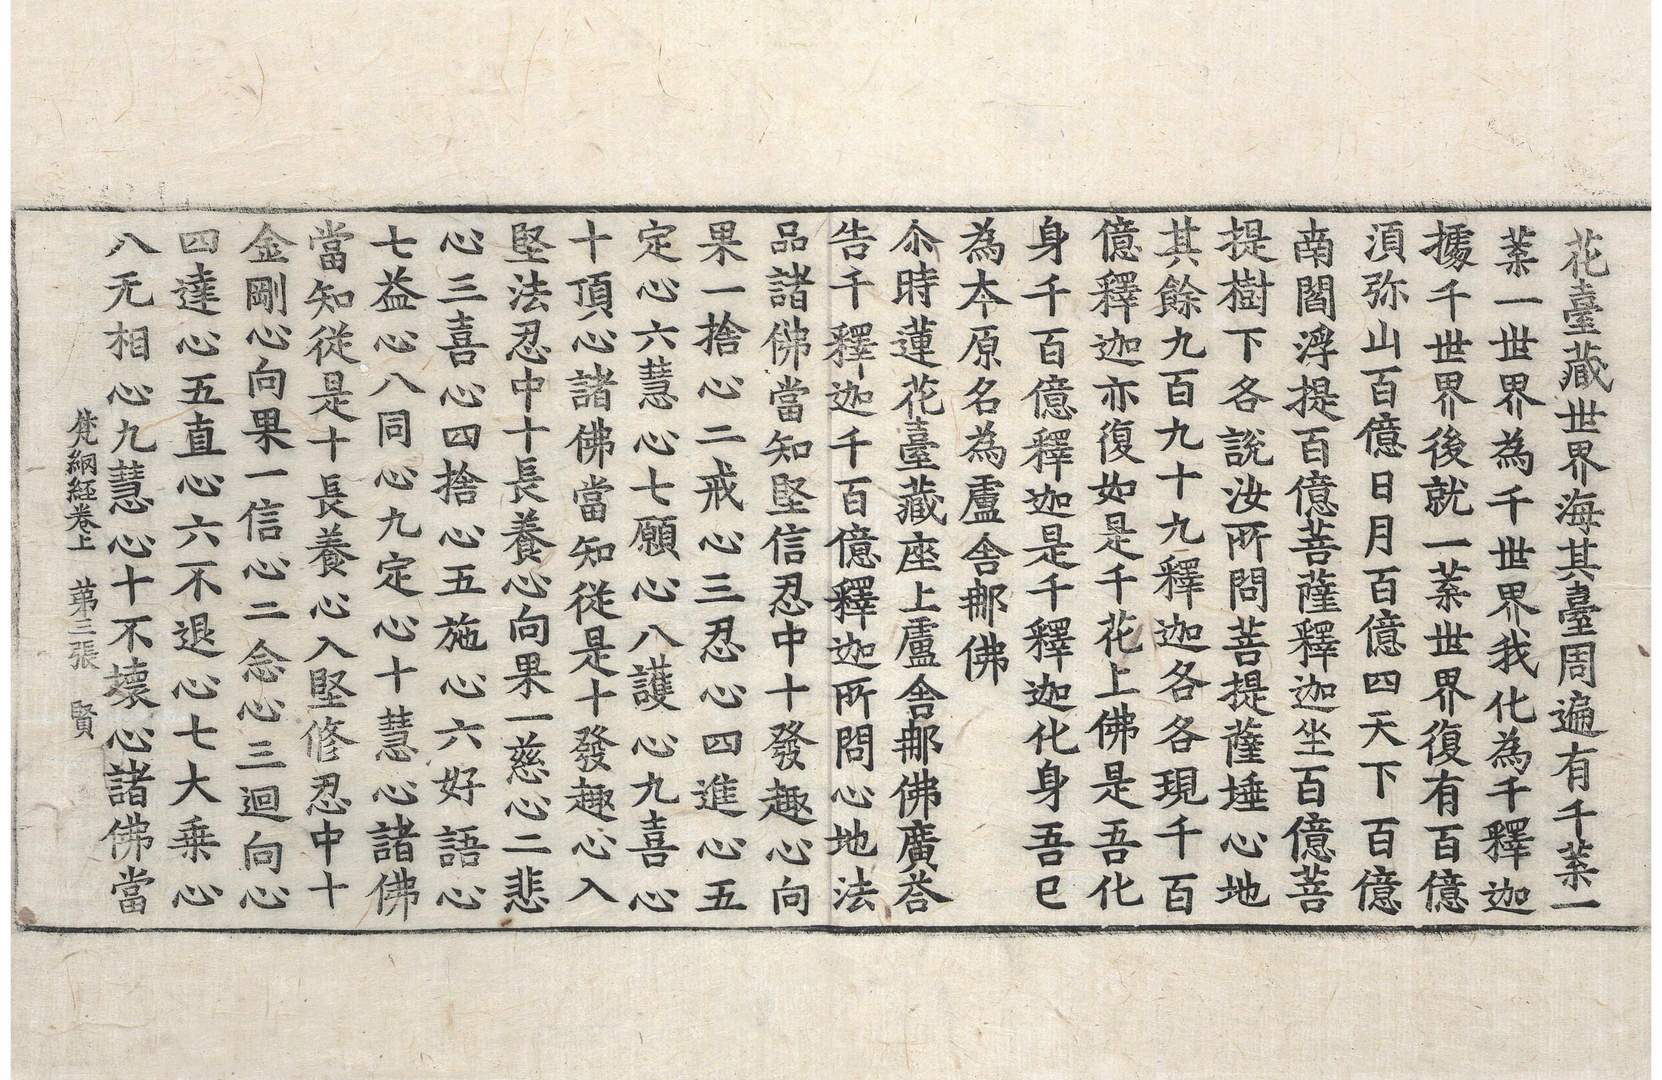 花臺藏世界海其臺周遍有千葉一
葉一世界為千世界我化為千釋迦
據千世界後就一葉世界復有百億
湏弥山百億日月百億四天下百億
南閻浮提百億菩薩釋迦坐百億菩
提樹下各說汝所問菩提薩埵心地
其餘九百九十九釋迦各各現千百
億釋迦亦復如是千花上佛是吾化
身千百億釋迦是千釋迦化身吾已
為本原名為盧舍那佛
尒時蓮花臺藏座上盧舍那佛廣荅
告千釋迦千百億釋迦所問心地法
品諸佛當知堅信忍中十發趣心向
果一捨心二戒心三忍心四進心五
定心六慧心七願心八護心九喜心
十頂心諸佛當知從是十發趣心入
堅法忍中十長養心向果一慈心二悲
心三喜心四捨心五施心六好語心
七益心八同心九定心十慧心諸佛
當知從是十長養心入堅修忍中十
金剛心向果一信心二念心三迴向心
四達心五直心六不退心七大乘心
八无相心九慧心十不壞心諸佛當
梵網経卷上 苐三張 賢